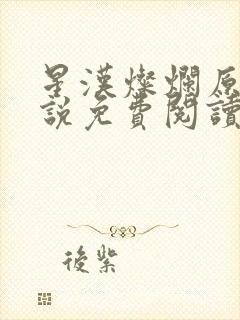 星漢燦爛原
說免費閱讀
後紫